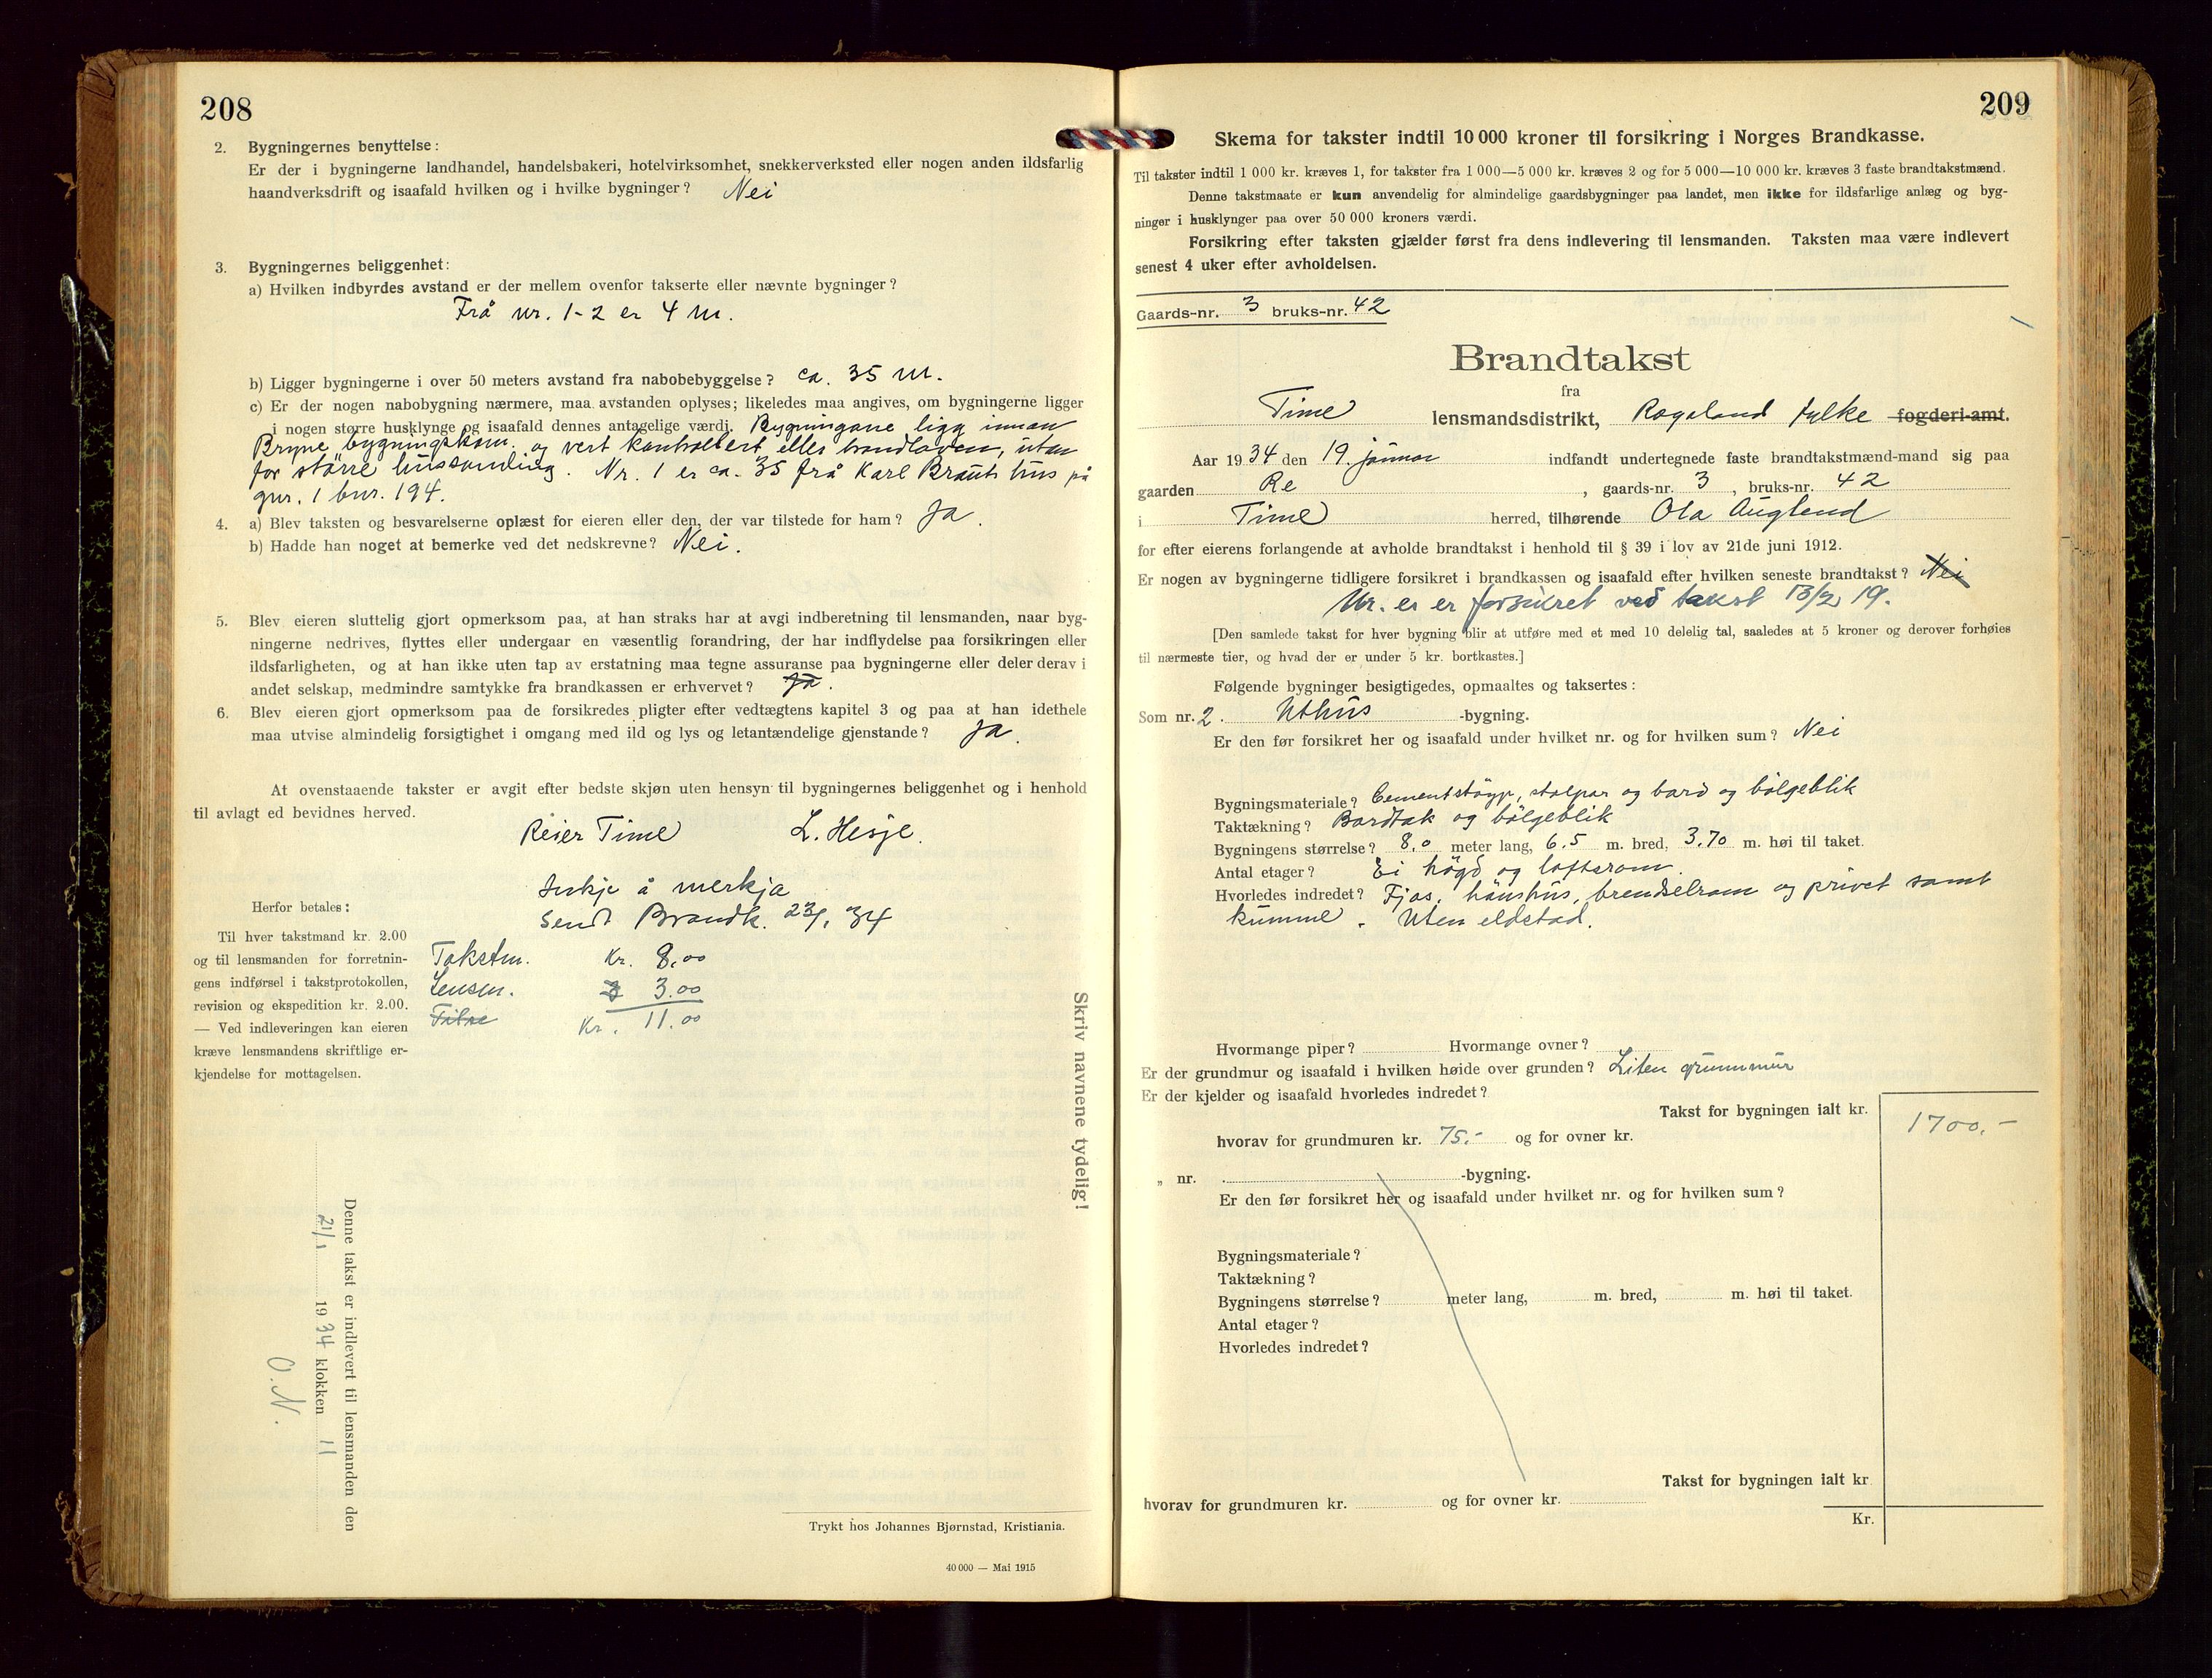 208
2. Bygningernes benyttelse:
Er der i bygningerne landhandel, handelsbakeri, hotelvirksomhet, snekkerverksted eller nogen anden ildsfarlig
haandverksdrift og isaafald hvilken og i hvilke bygninger? Nei
3. Bygningernes beliggenhet:
a) Hvilken indbyrdes avstand er der mellem ovenfor takserte eller nævnte bygninger?
Frå nr. 1-2 er 4 m.
b) Ligger bygningerne i over 50 meters avstand fra nabobebyggelse? ca. 35 m.
c) Er der nogen nabobygning nærmere, maa avstanden oplyses; likeledes maa angives, om bygningerne ligger
i nogen større husklynge og isaafald dennes antagelige værdi. Bygningane ligg innan
Bryne bygningskom. og vert kontrollert etter brandloven, utan
for större hussamling. Nr. 1 er ca. 35 frå Karl Brauts hus på
gnr. 1 bnr. 194.
4. a) Blev taksten og besvarelserne oplæst for eieren eller den, der var tilstede for ham? Ja.
b) Hadde han noget at bemerke ved det nedskrevne? Nei.
5. Blev eieren sluttelig gjort opmerksom paa, at han straks har at avgi indberetning til lensmanden, naar byg-
ningerne nedrives, flyttes eller undergaar en væsentlig forandring, der har indflydelse paa forsikringen eller
ildsfarligheten, og at han ikke uten tap av erstatning maa tegne assuranse paa bygningerne eller deler derav i
andet selskap, medmindre samtykke fra brandkassen er erhvervet? Ja.
6. Blev eieren gjort opmerksom paa de forsikredes pligter efter vedtægtens kapitel 3 og paa at han idethele
maa utvise almindelig forsigtighet i omgang med ild og lys og letantændelige gjenstande? Ja.
At ovenstaaende takster er avgit efter bedste skjøn uten hensyn til bygningernes beliggenhet og i henhold
til avlagt ed bevidnes herved.
Reier Time L. Hesje.
Inkje å merkja
Sendt Brandk. 23/1 34
Herfor betales:
Til hver takstmand kr. 2.00
og til lensmanden for forretnin-
gens indførsel i takstprotokollen,
revision og ekspedition kr. 2.00.
— Ved indleveringen kan eieren
kræve lensmandens skriftlige er-
kjendelse for mottagelsen.
Takstm. Kr. 8.00
Lensm. 3.00
Kr. 11.00
Skriv navnene tydelig!
Denne takst er indlevert til lensmanden den
21/1 1934 klokken 11
O.N.
Trykt hos Johannes Bjørnstad, Kristiania.
40 000 — Mai 1915
209
Skema for takster indtil 10 000 kroner til forsikring i Norges Brandkasse.
Til takster indtil 1 000 kr. kræves 1, for takster fra 1 000—5 000 kr. kræves 2 og for 5 000—10 000 kr. kræves 3 faste brandtakstmænd.
Denne takstmaate er kun anvendelig for almindelige gaardsbygninger paa landet, men ikke for ildsfarlige anlæg og byg-
ninger i husklynger paa over 50 000 kroners værdi.
Forsikring efter taksten gjælder først fra dens indlevering til lensmanden. Taksten maa være indlevert
senest 4 uker efter avholdelsen.
Gaards-nr. 3 bruks-nr. 42
Brandtakst
fra
Time lensmandsdistrikt, Rogaland fylke fogderi-amt.
Aar 1934 den 19. januar indfandt undertegnede faste brandtakstmænd-mand sig paa
gaarden Re, gaards-nr. 3, bruks-nr. 42
i Time herred, tilhørende Ola Auglend
for efter eierens forlangende at avholde brandtakst i henhold til § 39 i lov av 21de juni 1912.
Er nogen av bygningerne tidligere forsikret i brandkassen og isaafald efter hvilken seneste brandtakst? Nei
Nr. er er forsikret ved takst 13/2 19.
[Den samlede takst for hver bygning blir at utføre med et med 10 delelig tal, saaledes at 5 kroner og derover forhøies
til nærmeste tier, og hvad der er under 5 kr. bortkastes.]
Følgende bygninger besigtigedes, opmaaltes og taksertes:
Som nr. 2. Uthus -bygning.
Er den før forsikret her og isaafald under hvilket nr. og for hvilken sum? Nei
Bygningsmateriale? Cementstöyp, stolpar og bord og bölgeblik
Taktækning? Bordtak og bölgeblik
Bygningens størrelse? 8,0 meter lang, 6.5 m. bred, 3.70 m. høi til taket.
Antal etager? Ei högd og loftsrom.
Hvorledes indredet? Fjos, hönshus, brendselrom og privet samt
kumme. Uten eldstad.
Hvormange piper? Hvormange ovner?
Er der grundmur og isaafald i hvilken høide over grunden? Liten grunnmur
Er der kjelder og isaafald hvorledes indredet?
Takst for bygningen ialt kr. 1700,-
hvorav for grundmuren kr. 75.- og for ovner kr.
„ nr. -bygning.
Er den før forsikret her og isaafald under hvilket nr. og for hvilken sum?
Bygningsmateriale?
Taktækning?
Bygningens størrelse? meter lang, m. bred, m. høi til taket.
Antal etager?
Hvorledes indredet?
Takst for bygningen ialt kr
hvorav for grundmuren kr. og for ovner kr.
Kr.